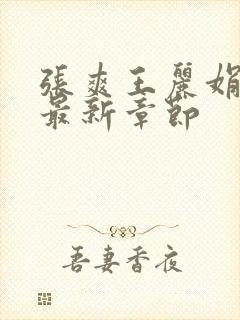 張爽王麗娟
最新章節
吾妻香夜